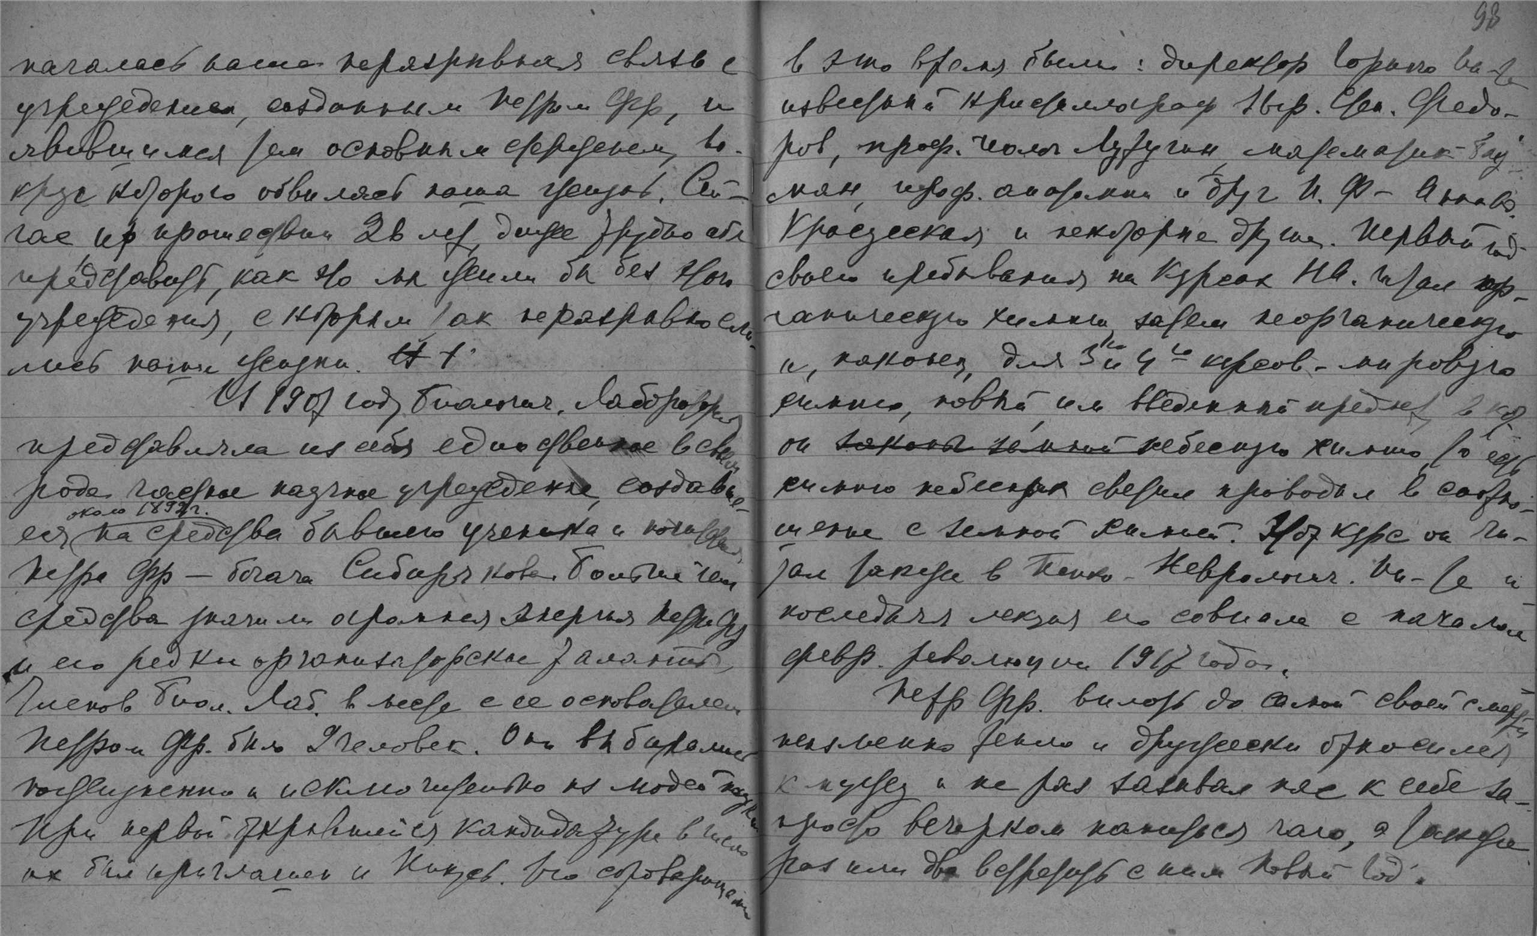 началась наша неразрывная связь с
учреждением, созданным Петром Фр, и
явившимся тем основным стержнем, во-
круг которого обвилась наша жизнь. Сей-
час по прошествии 28 лет, даже трудно себе
представить, как это мы жили бы без этого
учреждения, с которым так неразрывно сли-
лись наши жизни.
В 1907 году Биологич. Лаборатория
представляла из себя единственное в своем
роде частное научное учреждение, создавше-
еся около 1892 г. на средства бывшего ученика и
Петра Фр — богача Сибирякова. Больше чем
средства значили огромная энергия Петра Фр
и его редкий организаторский талант.
Членов биол. Лаб. вместе с ее основателем
Петром Фр. было 9 человек. Они выбирались
пожизненно и исключительно из людей науки
При первой открывшейся кандидатуре в число
их был приглашен и Никол. Его сотоварищами
98
в это время были: директор Горного Ин-та
известный кристаллограф Евгр. Степ. Федо-
ров, проф. геолог Лутугин, математик Бау-
ман, проф. анатомии и друг П. Ф — Анна
Красуская и некоторые другие. Первый год
своего пребывания на Курсах НА. читал ор-
ганическую химию, затем неорганическую
и, наконец, для 3го и 4го курсов — мировую
химию, новый им введенный предмет, в кот.
он законы земной небесную химию, то есть
химию небесных светил проводил в соотно-
шение с земной химией. Этот курс он чи-
тал также в Психо-Неврологич. Ин-те и
последняя лекция его совпала с началом
февр. революции 1917 года.
Петр Фр. вплоть до самой своей смерти
неизменно тепло и дружески относился
к мужу и не раз зазывал нас к себе за-
просто вечерком напиться чаю, а также
раз или два встретить с ним Новый Год.